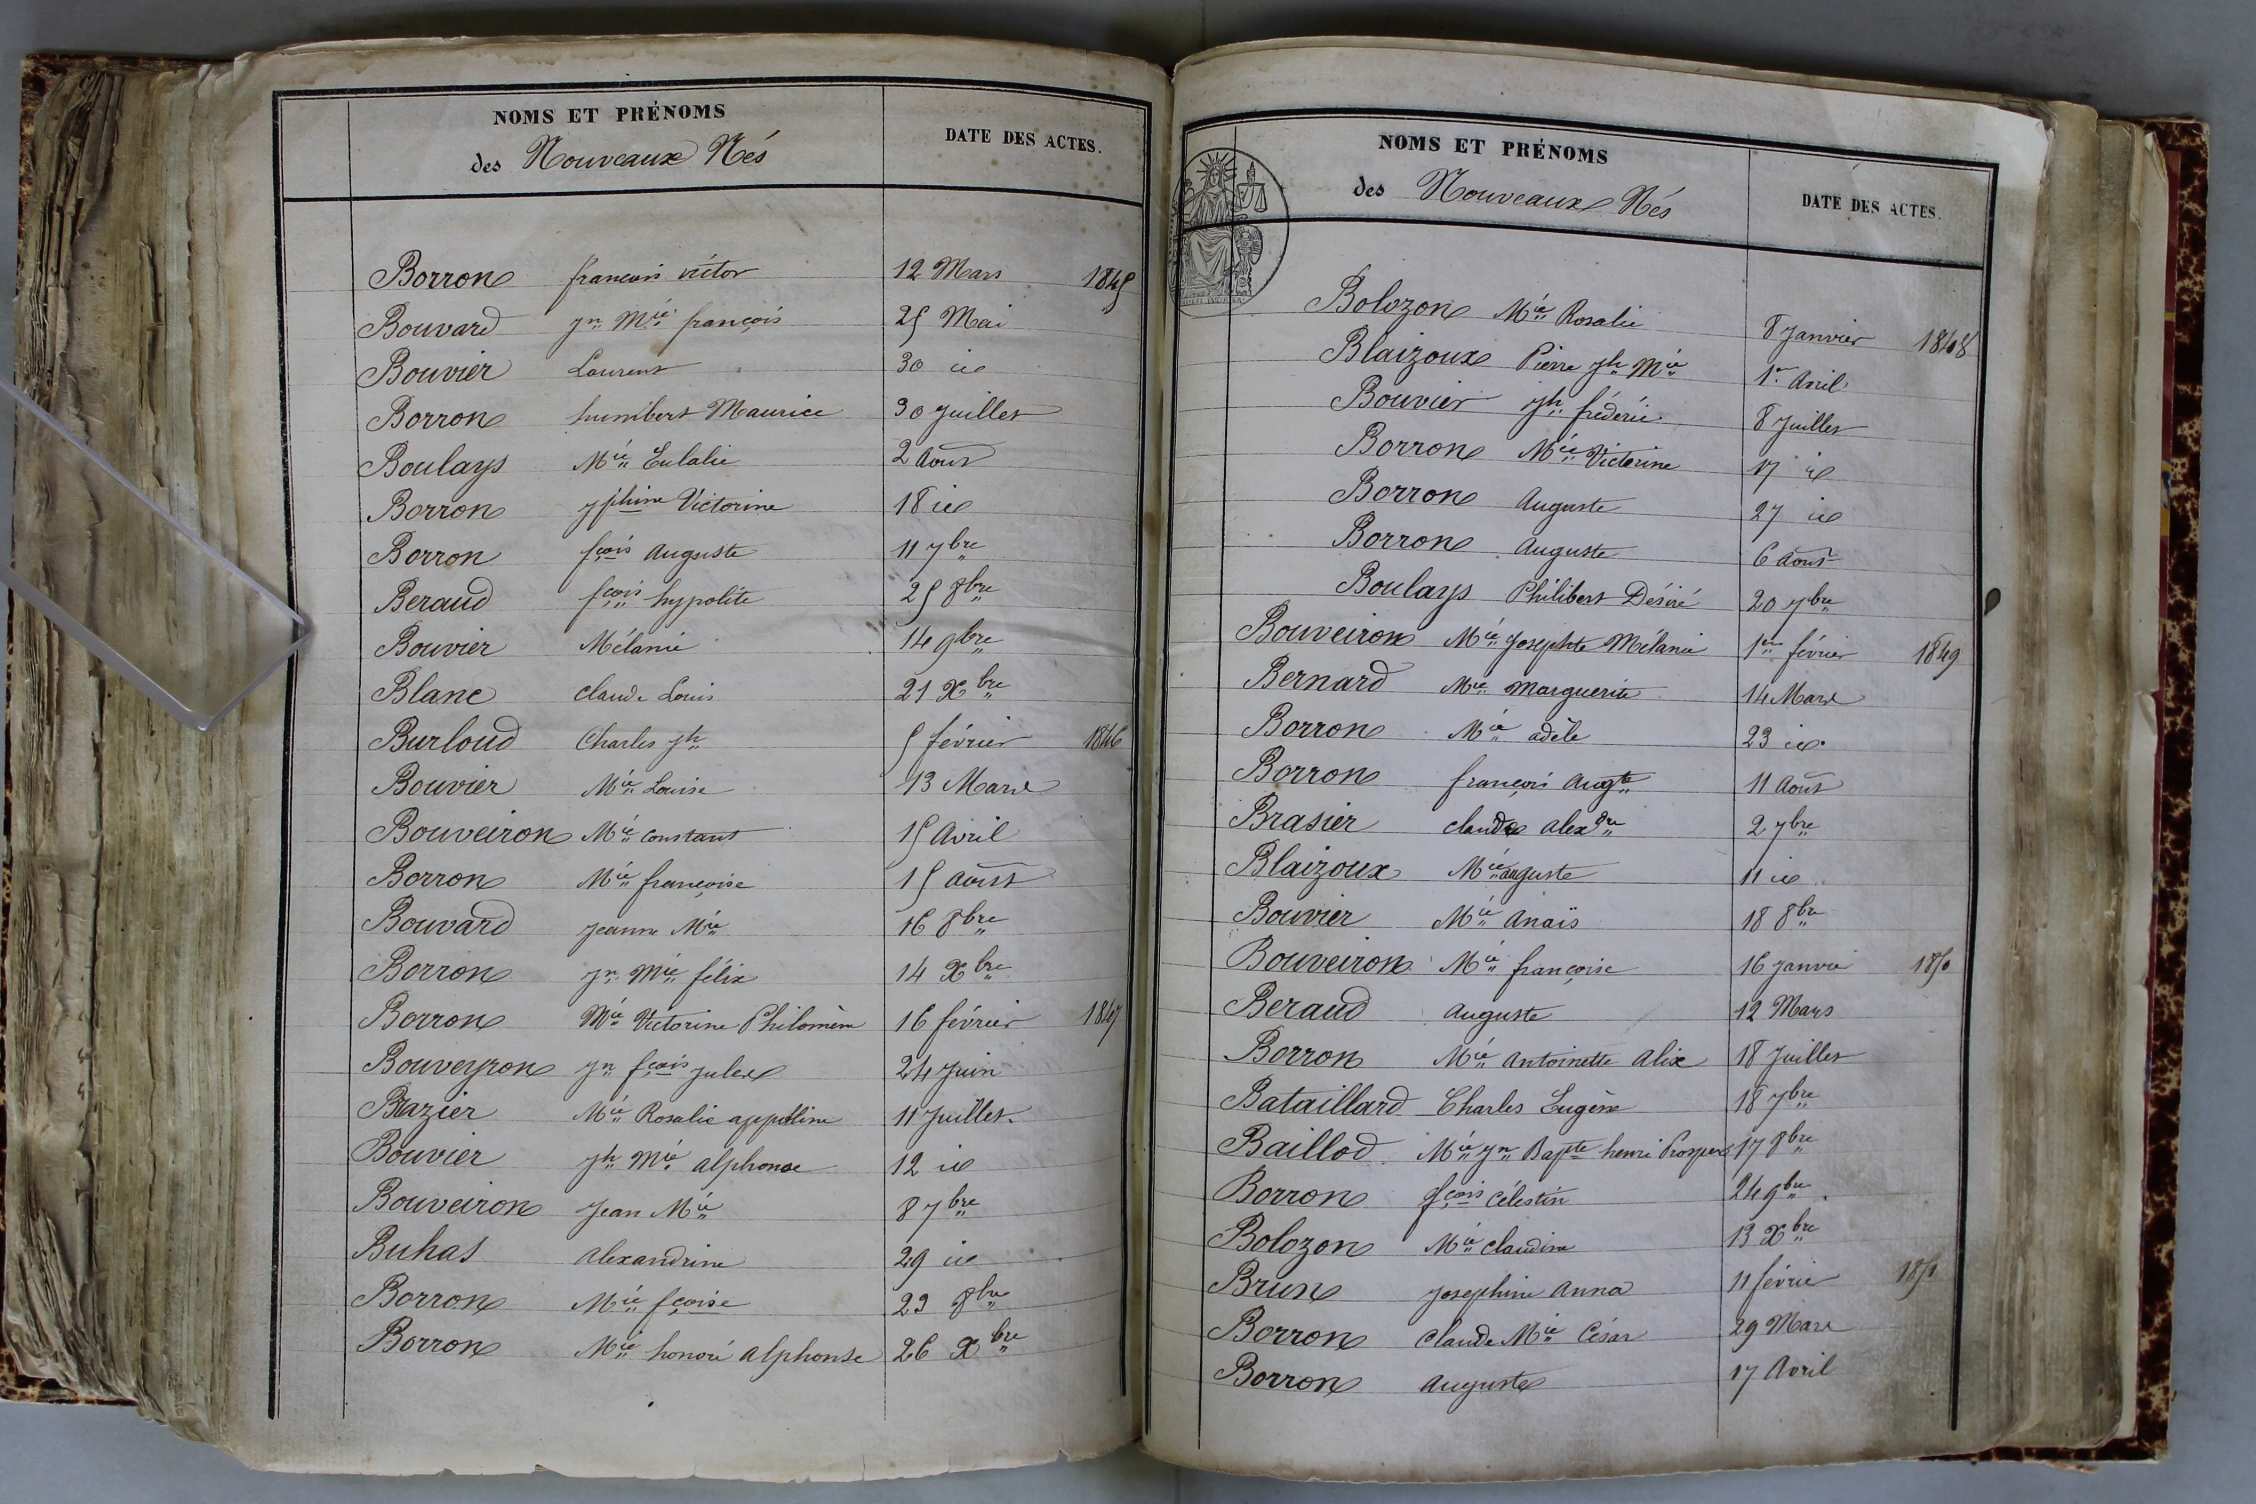 NOMS ET PRÉNOMS
des Nouveaux Nés
DATE DES ACTES.
Borron françois victor 12 Mars 1845
Bouvard Jn Mie françois 25 Mai
Bouvier Laurent 30 id
Borron humbert Maurice 30 Juillet
Boulays Mie Eulalie 2 Aout
Borron Jphine Victorine 18 id
Borron fçois Auguste 11 7bre
Beraud fçois hypolite 25 8bre
Bouvier Mélanie 14 9bre
Blanc Claude Louis 21 Xbre
Burloud Charles Jh 5 février 1846
Bouvier Mie Louise 13 Mars
Bouveiron Mie Constant 15 Avril
Borron Mie françoise 15 Aout
Bouvard Jeanne Mie 16 8bre
Borron Jn Mie félix 14 Xbre
Borron Mie Victorine Philomène 16 février 1847
Bouveyron Jn fçois Jules 24 Juin
Brazier Mie Rosalie appoline 11 Juillet
Bouvier Jh Mie Alphonse 12 id
Bouveiron Jean Mie 8 7bre
Buhas Alexandrine 29 id
Borron Mie fçoise 23 8bre
Borron Mie honoré Alphonse 26 Xbre
NOMS ET PRÉNOMS
des Nouveaux Nés
DATE DES ACTES.
Bolozon Mie Rosalie 8 Janvier 1848
Blaizoux Pierre Jh Mie 1er Avril
Bouvier Jh fréderic 8 Juillet
Borron Mie Victorine 17 id
Borron Auguste 27 id
Borron Auguste 6 Aout
Boulays Philibert Désiré 20 7bre
Bouveiron Mie Josephte Mélanie 1er février 1849
Bernard Mie Marguerite 14 Mars
Borron Mie adèle 23 id
Borron françois Augte 11 Aout
Brasier claude alexdre 2 7bre
Blaizoux Mie auguste 11 id
Bouvier Mie Anaïs 18 8bre
Bouveiron Mie françoise 16 Janvier 1850
Beraud Auguste 12 Mars
Borron Mie Antoinette Alix 18 Juillet
Bataillard Charles Eugène 18 7bre
Baillod Mie Jn Bapte henri Prosper 17 8bre
Borron fçois Célestin 24 9bre
Bolozon Mie Claudine 13 Xbre
Brun Josephine Anna 11 février 1851
Borron Claude Mie César 29 Mars
Borron Auguste 17 Avril